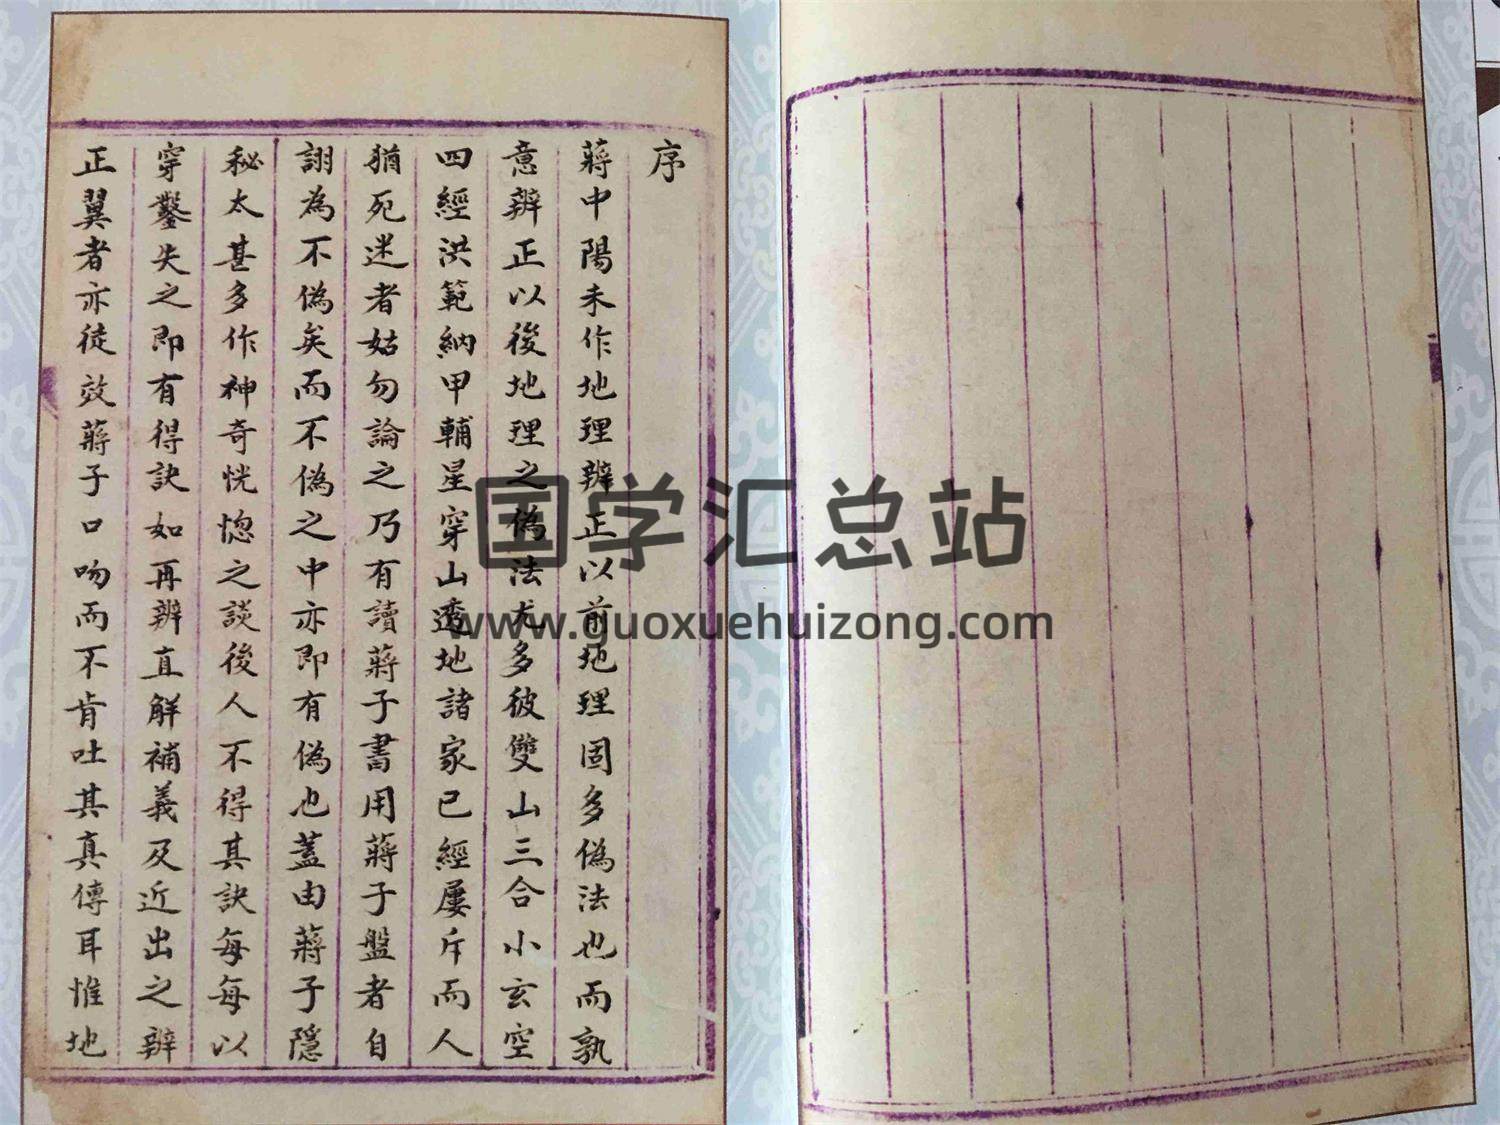 序
蔣中陽未作地理辨正以前地理固多偽法也而孰
意辨正以後地理之偽法尤多彼雙山三合小玄空
四經洪範納甲輔星穿山透地諸家已經屢斥而人
猶死迷者姑勿論之乃有讀蔣子書用蔣子盤者自
詡為不偽矣而不偽之中亦即有偽也蓋由蔣子隱
秘太甚多作神奇恍惚之談後人不得其訣每每以
穿鑿失之即有得訣如再辨直解補義及近出之辨
正翼者亦徒效蔣子口吻而不肯吐其真傳耳惟地
国学汇总站
www.guoxuehuizong.com